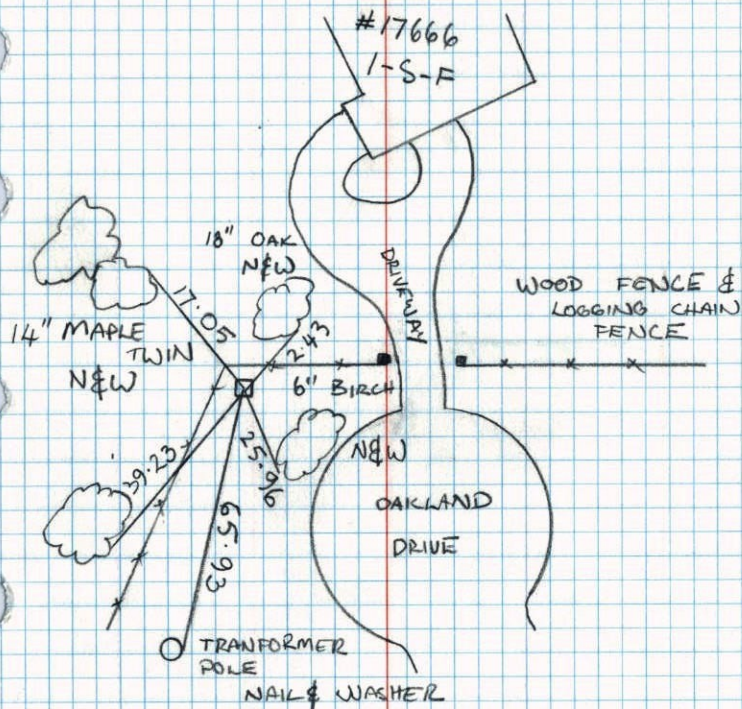 #17666
1-S-F
18" OAK
N&W
DRIVEWAY
WOOD FENCE &
LOGGING CHAIN
FENCE
17.05
14" MAPLE
TWIN
N&W
2.43
6" BIRCH
N&W
39.23
25.96
65.93
OAKLAND
DRIVE
TRANFORMER
POLE
NAIL & WASHER